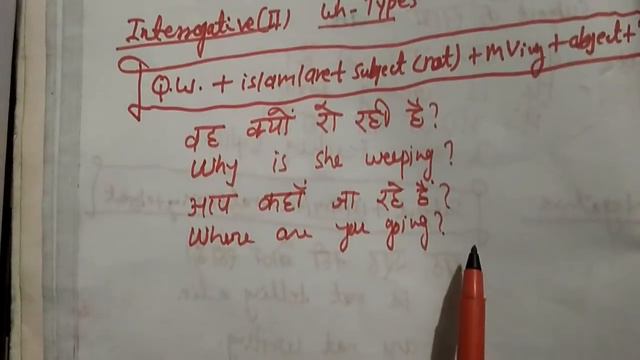 Interrogative (II) Wh- Types
Q.W. + is/am/are + subject (not) + MVing + object +
वह क्यों रो रही है?
Why is she weeping?
आप कहाँ जा रहे हैं?
Where are you going?